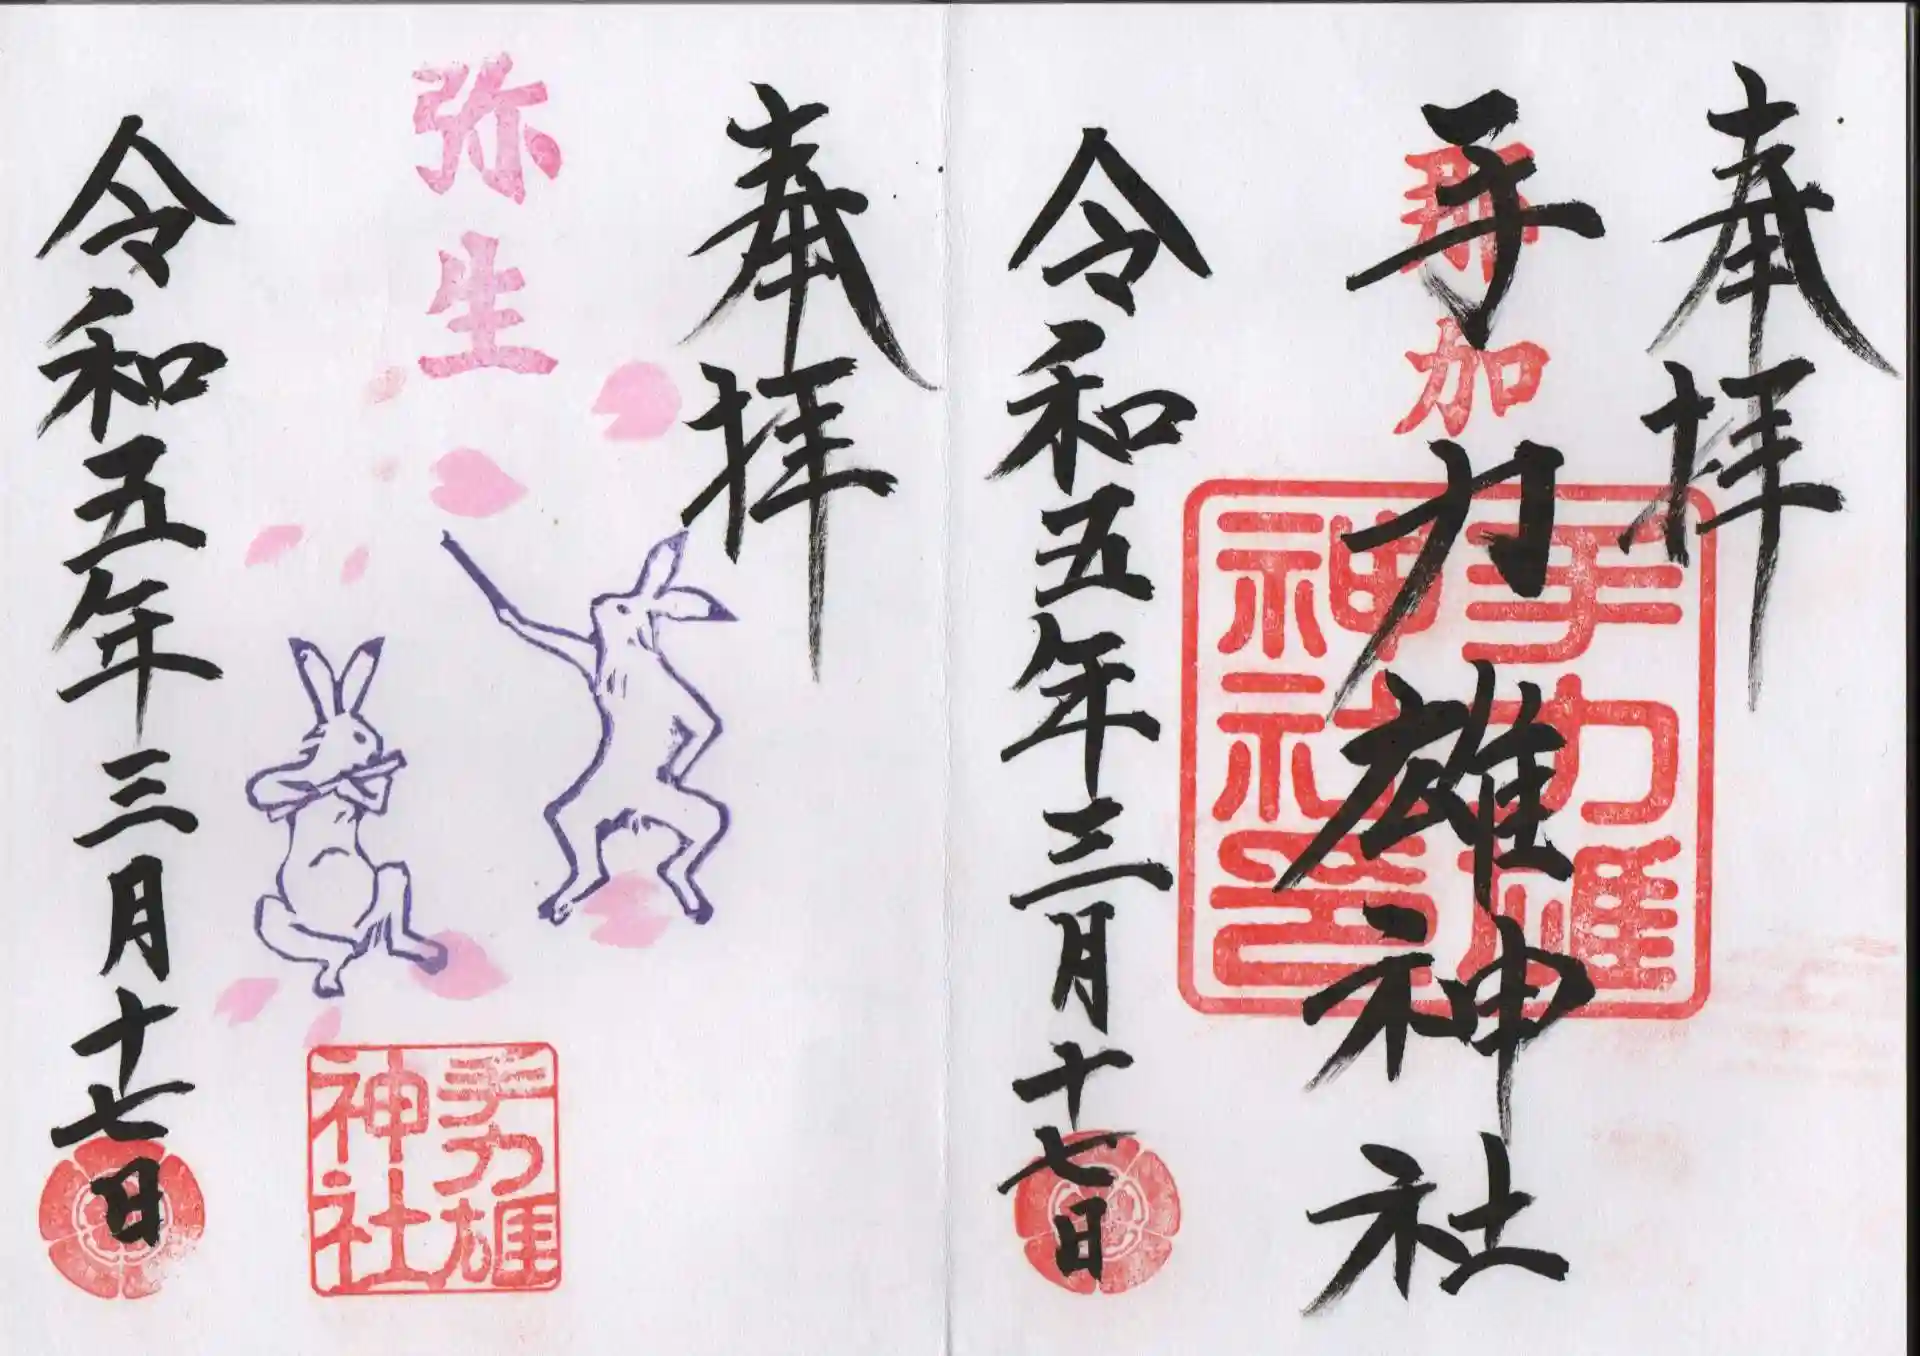 奉拝
那加
手力雄神社
手力雄
神社印
令和五年三月十七日
奉拝
弥生
手力雄
神社
令和五年三月十七日